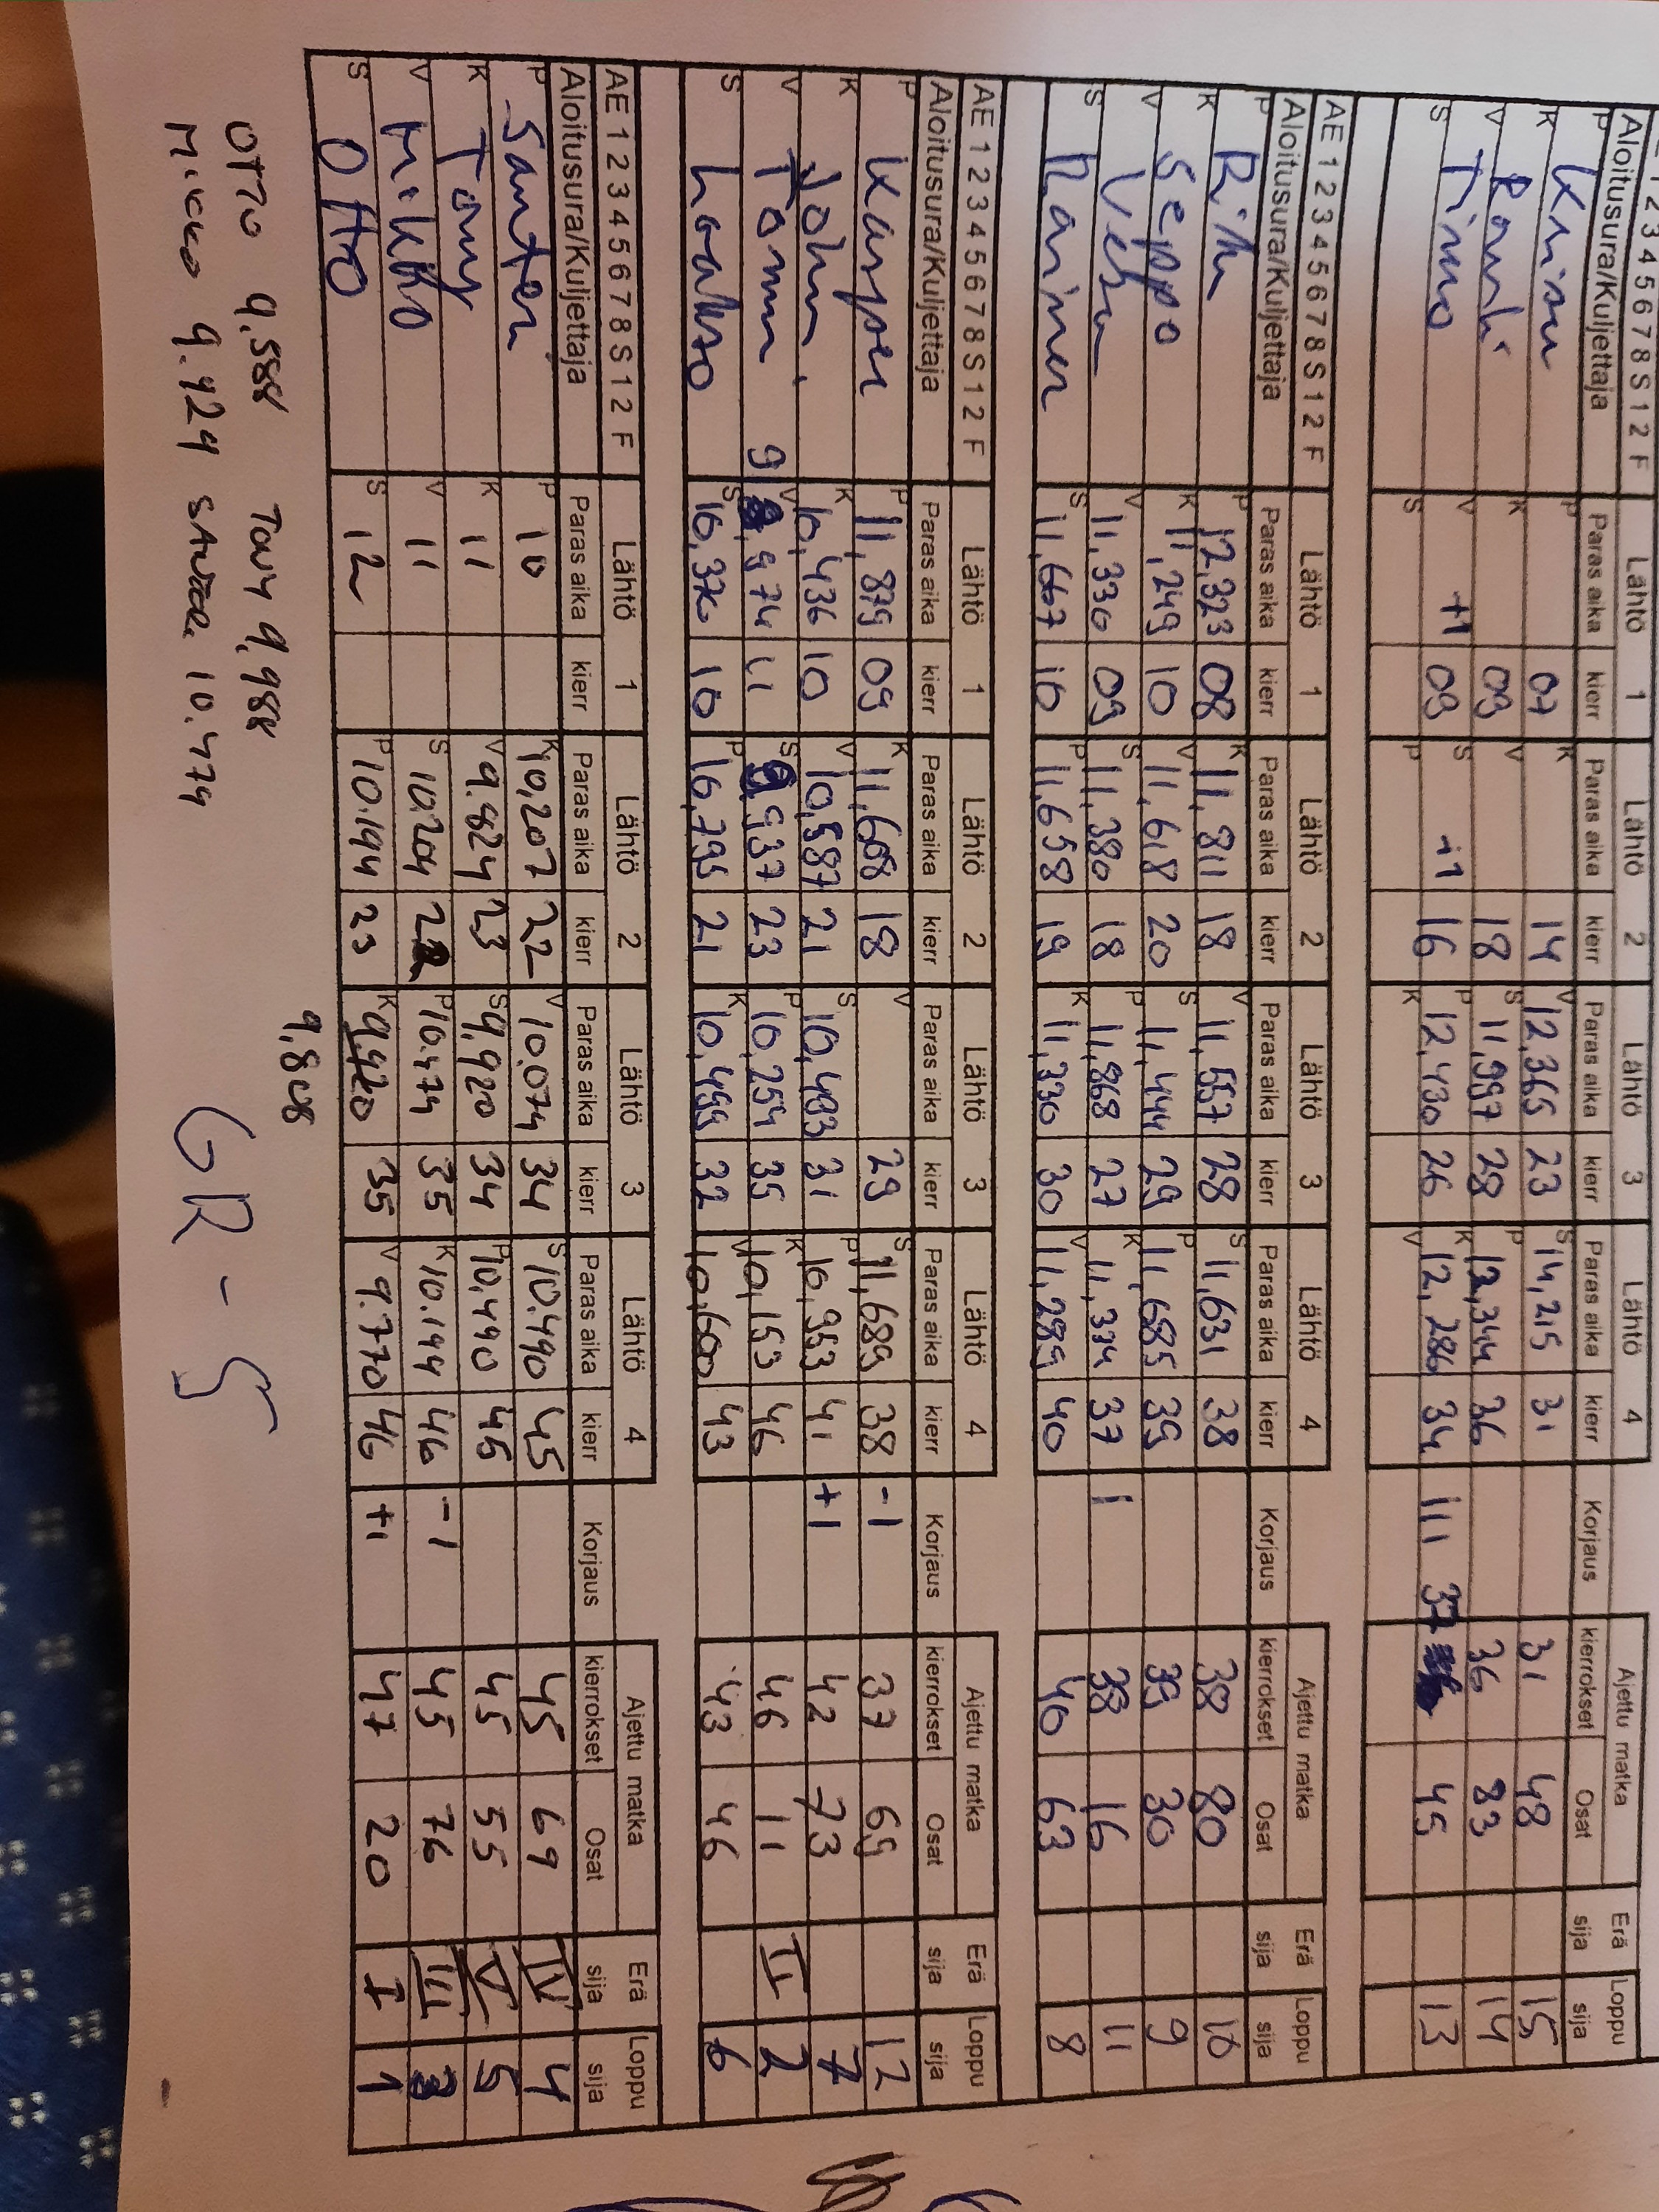 1 2 3 4 5 6 7 8 S 1 2 F Lähtö 1 Lähtö 2 Lähtö 3 Lähtö 4 Ajettu matka Erä Loppu
Aloitusura/Kuljettaja Paras aika kierr Paras aika kierr Paras aika kierr Paras aika kierr Korjaus kierrokset Osat sija sija
P P
K K 07 K 14 V 12,365 23 S 14,215 31 31 48 15
V V 09 V 18 S 11,997 28 P 12,344 36 36 83 14
S Timo S +1 09 S +1 16 P 12,430 26 K 12,286 34 III 37 45 13
P K V
AE 1 2 3 4 5 6 7 8 S 1 2 F Lähtö 1 Lähtö 2 Lähtö 3 Lähtö 4 Ajettu matka Erä Loppu
Aloitusura/Kuljettaja Paras aika kierr Paras aika kierr Paras aika kierr Paras aika kierr Korjaus kierrokset Osat sija sija
P P 12,323 08 K 11,811 18 V 11,557 28 S 11,631 38 38 80 10
K Seppo K 11,249 10 V 11,618 20 S 11,444 29 P 11,685 39 39 30 9
V Vesa V 11,330 09 S 11,380 18 P 11,868 27 K 11,334 37 I 38 16 11
S Rainer S 11,667 10 P 11,658 19 K 11,330 30 V 11,289 40 40 63 8
AE 1 2 3 4 5 6 7 8 S 1 2 F Lähtö 1 Lähtö 2 Lähtö 3 Lähtö 4 Ajettu matka Erä Loppu
Aloitusura/Kuljettaja Paras aika kierr Paras aika kierr Paras aika kierr Paras aika kierr Korjaus kierrokset Osat sija sija
P Kasper P 11,879 09 K 11,608 18 V 29 S 11,689 38 -1 37 69 12
K K 10,436 10 V 10,587 21 S 10,493 31 P 10,953 41 +1 42 73 7
V Tomm V 9,974 11 S 9,937 23 P 10,254 35 K 10,153 46 46 11 II 2
S Laakso S 10,370 10 P 10,795 21 K 10,499 32 V 10,600 43 43 46 6
AE 1 2 3 4 5 6 7 8 S 1 2 F Lähtö 1 Lähtö 2 Lähtö 3 Lähtö 4 Ajettu matka Erä Loppu
Aloitusura/Kuljettaja Paras aika kierr Paras aika kierr Paras aika kierr Paras aika kierr Korjaus kierrokset Osat sija sija
P Santeri P 10 K 10,207 22 V 10.074 34 S 10.490 45 45 69 IV 4
K Tony K 11 V 9.824 23 S 9,920 34 P 10,490 45 45 55 V 5
V Mikko V 11 S 10.204 22 P 10.474 35 K 10.144 46 -1 45 76 III 3
S Otto S 12 P 10.194 23 K 9.420 35 V 9.770 46 +1 47 20 I 1
9,808
OTTO 9.588 TONY 9,988
MIKKO 9.924 10.474
GR - 5